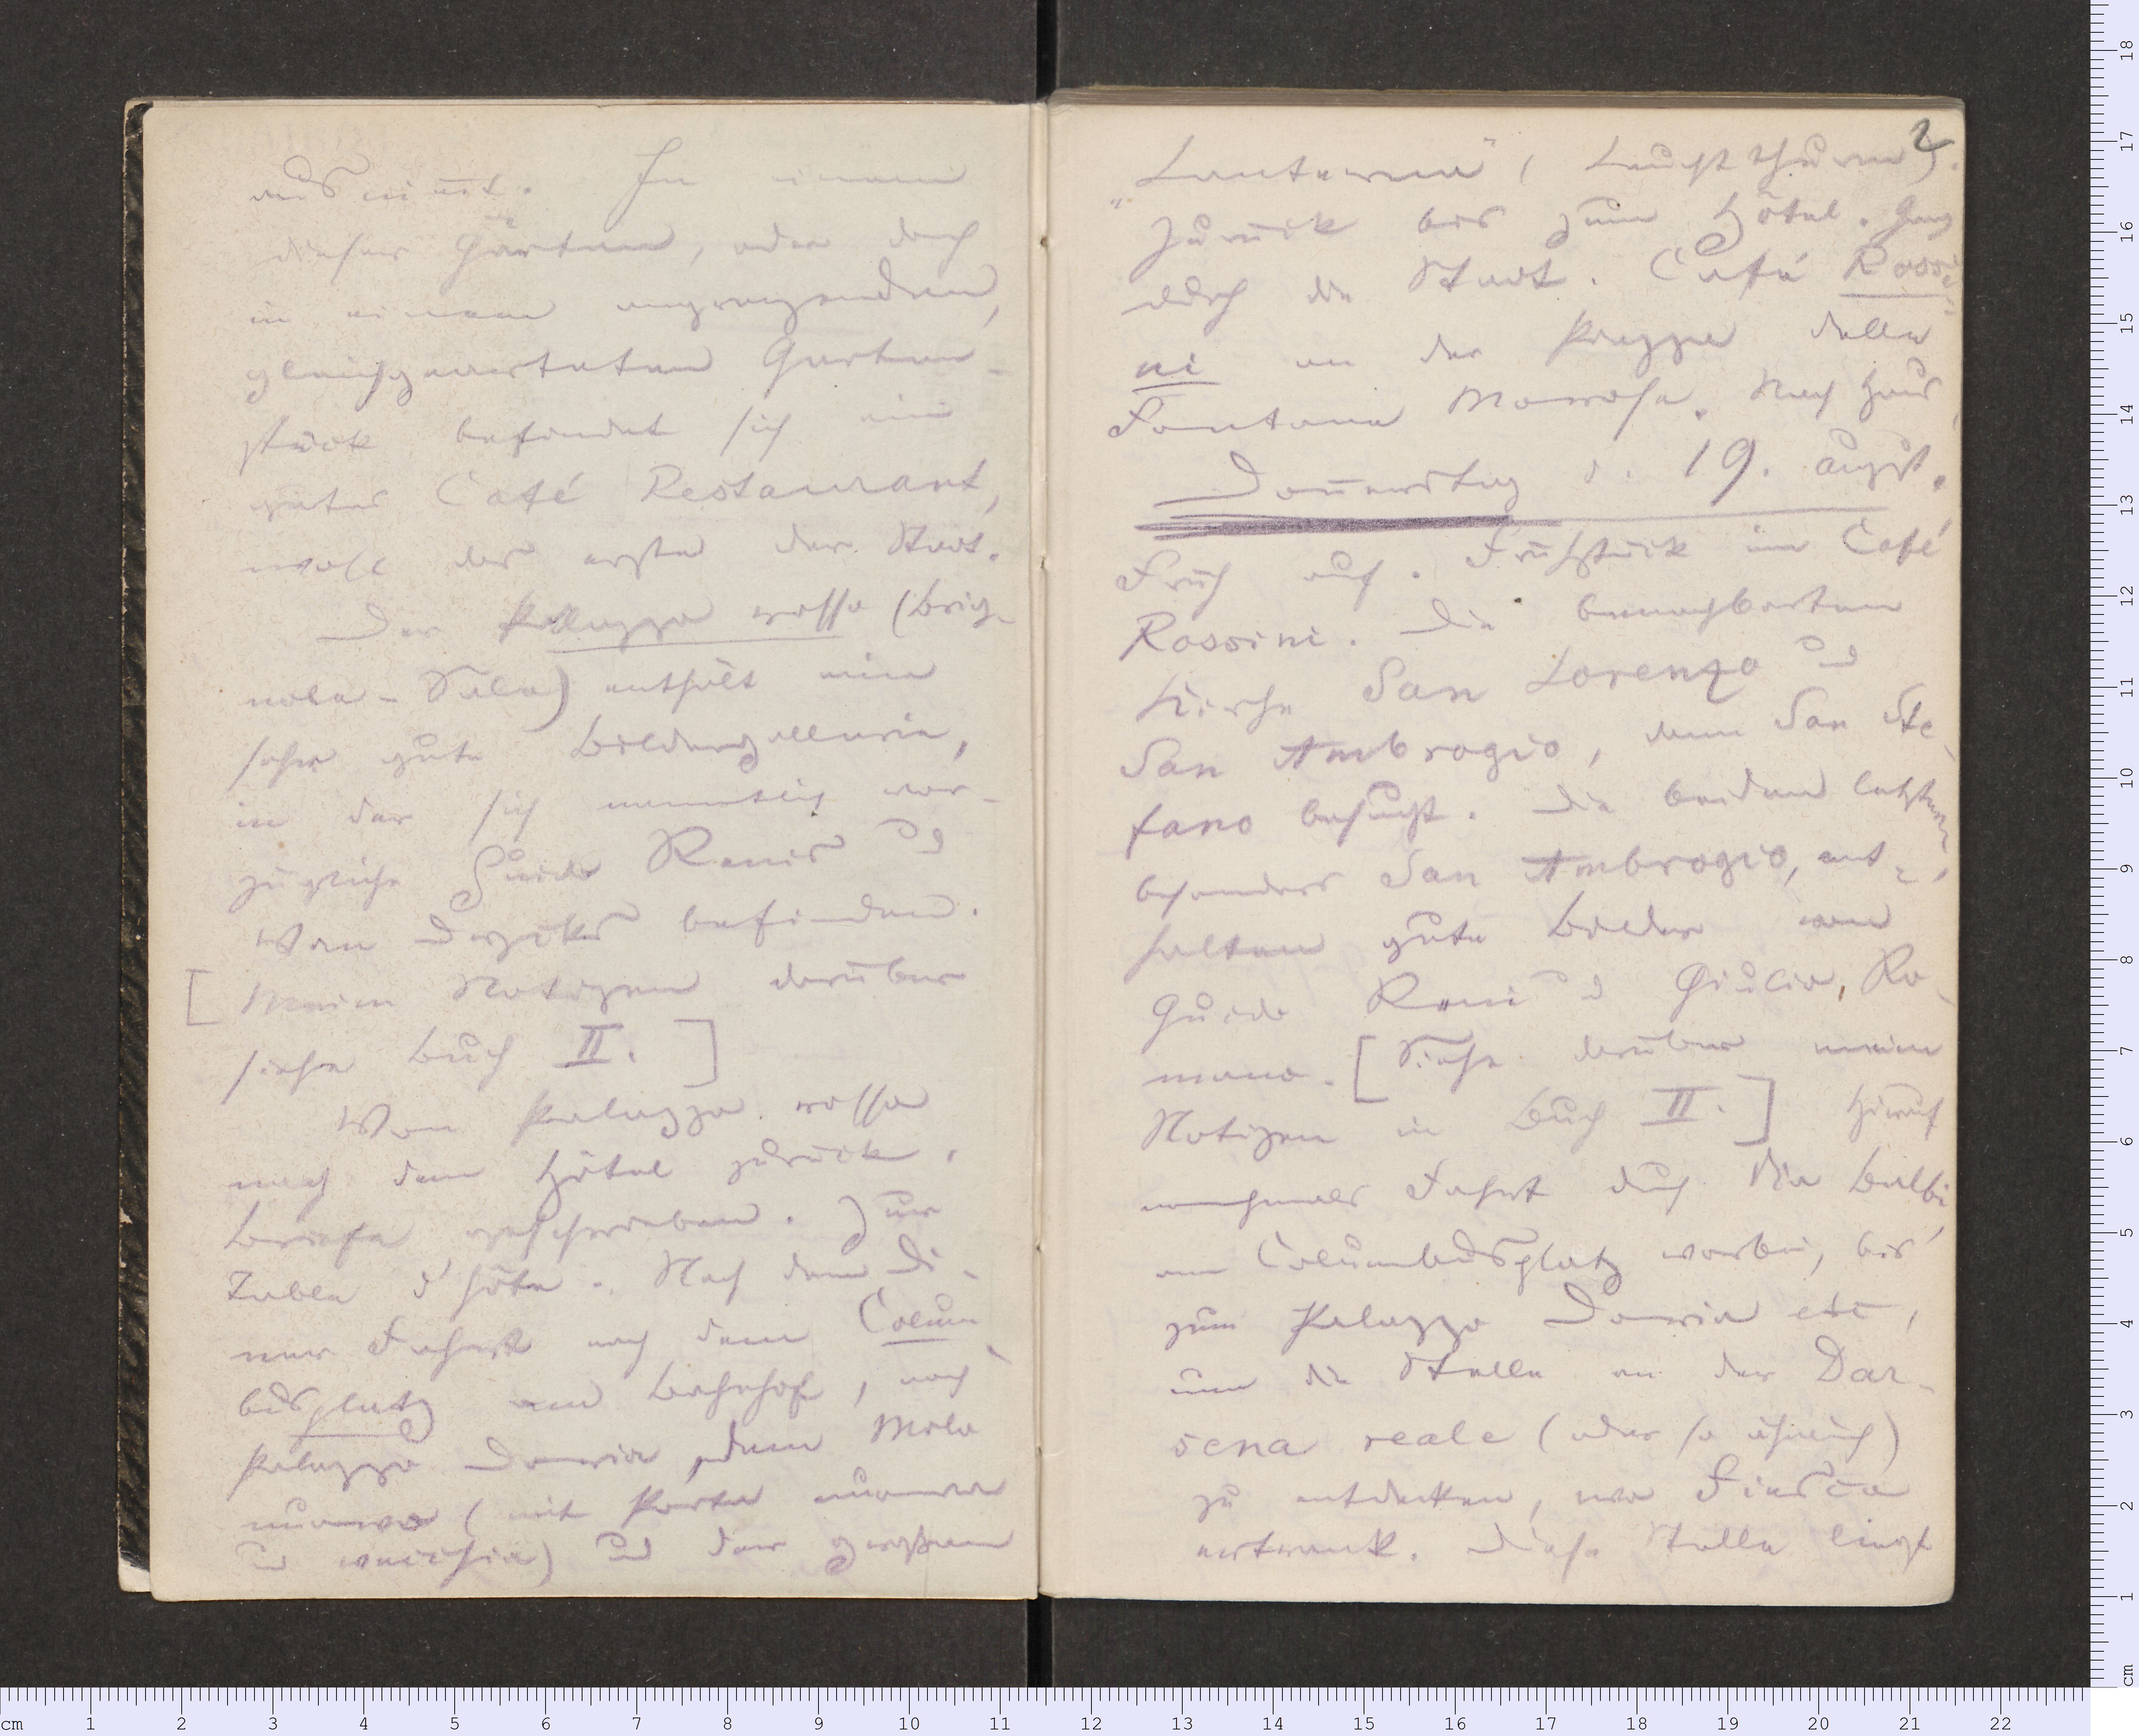 ausnimt. In einem
dieser Gärten, oder doch
in einem angrenzenden,
gleichgearteten Garten-
stück befindet sich ein
gutes Café Restaurant,
wohl das erste der Stadt.
Der Pallazzo rosso (Brig-
nole-Sale) enthält eine
sehr gute Bildergallerie,
in der sich namentlich vor-
zügliche Guido Renis und
Van Dycks befinden.
[Meine Notizen darüber
siehe Buch II.]
Vom Palazzo rosso
nach dem Hôtel zurück.
Briefe geschrieben. Zur
Table d'hôte. Nach dem Di-
ner Fahrt nach dem Colum-
busplatz am Bahnhof, nach
Palazzo Doria, dem Molo
nuovo (mit Porta nuova
und vecchia) und der großen
2
"Lanterna" (Leuchtthurm).
Zurück bis zum Hôtel. Gang
durch die Stadt. Café Rossi-
ni an der Piazza della
Fontana Morosa. Nach Haus.
Donnerstag d. 19. August.
Früh auf. Frühstück im Café
Rossini. Die benachbarten
Kirche San Lorenzo und
San Ambrogio, dann San Ste-
fano besucht. Die beiden letztren,
besonders San Ambrogio, ent-
halten gute Bilder von
Guido Reni und Giulio Ro-
mano. [Siehe darüber meine
Notizen in Buch II.] Hierauf
nochmals Fahrt durch Via Balbi,
am Columbusplatz vorbei, bis
zum Palazzo Doria etc,
um die Stelle an der Dar-
sena reale (oder so ähnlich)
zu entdecken, wo Fiesco
ertrank. Diese Stelle liegt
cm 1 2 3 4 5 6 7 8 9 10 11 12 13 14 15 16 17 18 19 20 21 22
cm 1 2 3 4 5 6 7 8 9 10 11 12 13 14 15 16 17 18